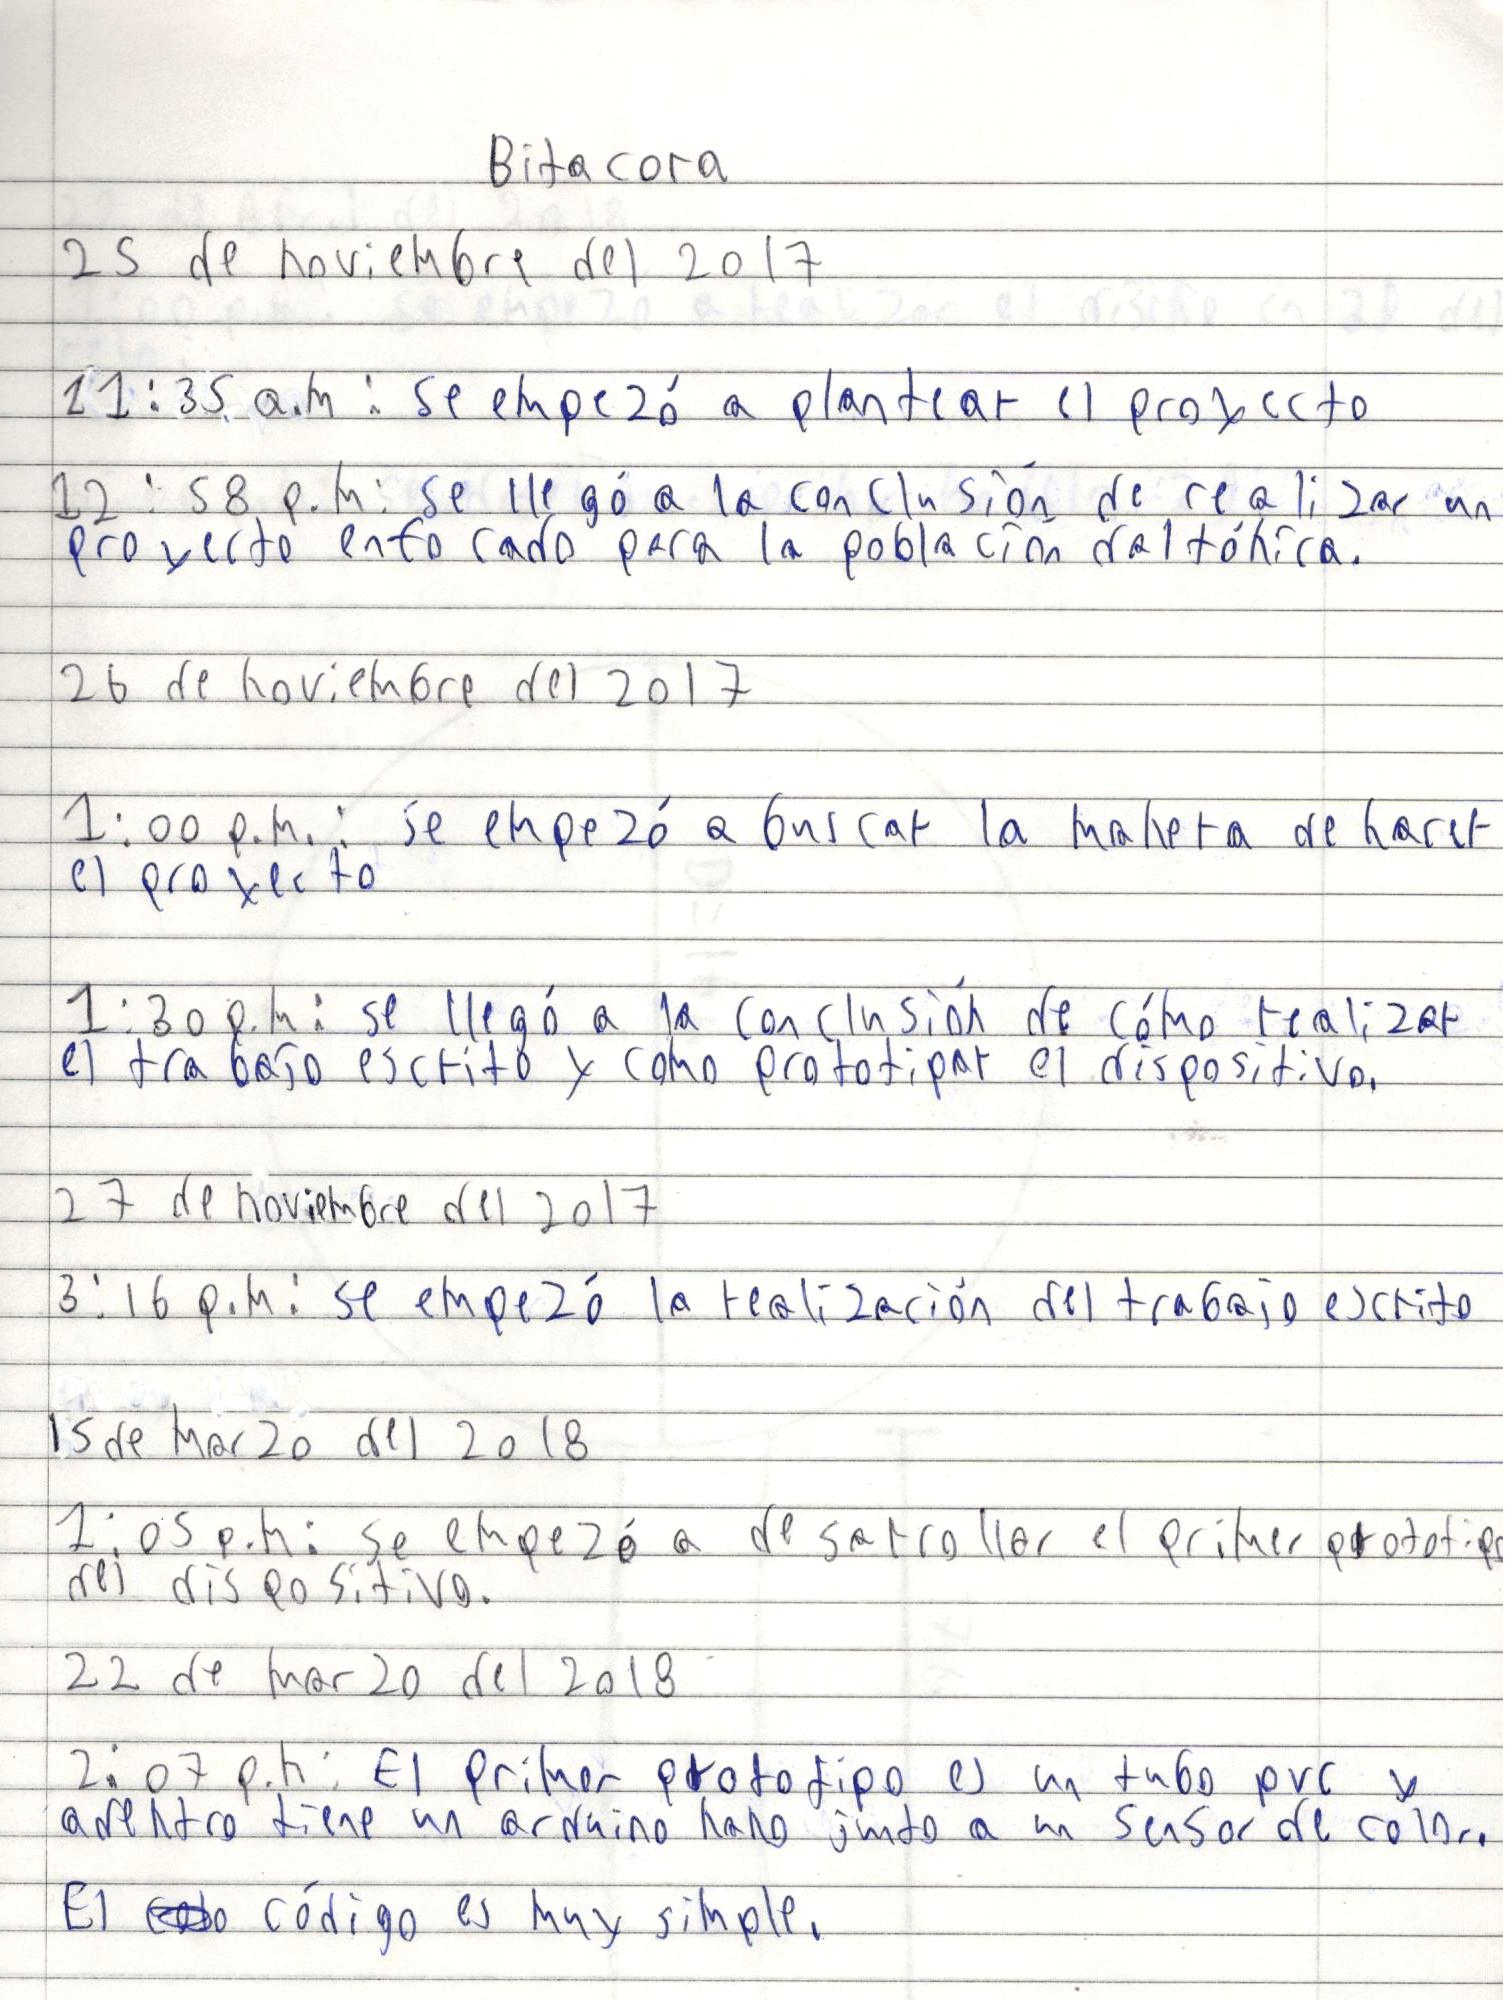 Bitacora
25 de noviembre del 2017
11:35 a.m: se empezó a plantear el proyecto
12:58 p.m: se llegó a la conclusión de realizar un
proyecto enfocado para la población daltónica.
26 de noviembre del 2017
1:00 p.m.: se empezó a buscar la manera de hacer
el proyecto
1:30 p.m: se llegó a la conclusión de cómo realizar
el trabajo escrito y como prototipar el dispositivo.
27 de noviembre del 2017
3:16 p.m: se empezó la realización del trabajo escrito
15 de marzo del 2018
1:05 p.m: se empezó a desarrollar el primer prototipo
del dispositivo.
22 de marzo del 2018
2:07 p.m: El primer prototipo es un tubo pvc y
adentro tiene un arduino nano junto a un sensor de color.
El código es muy simple.